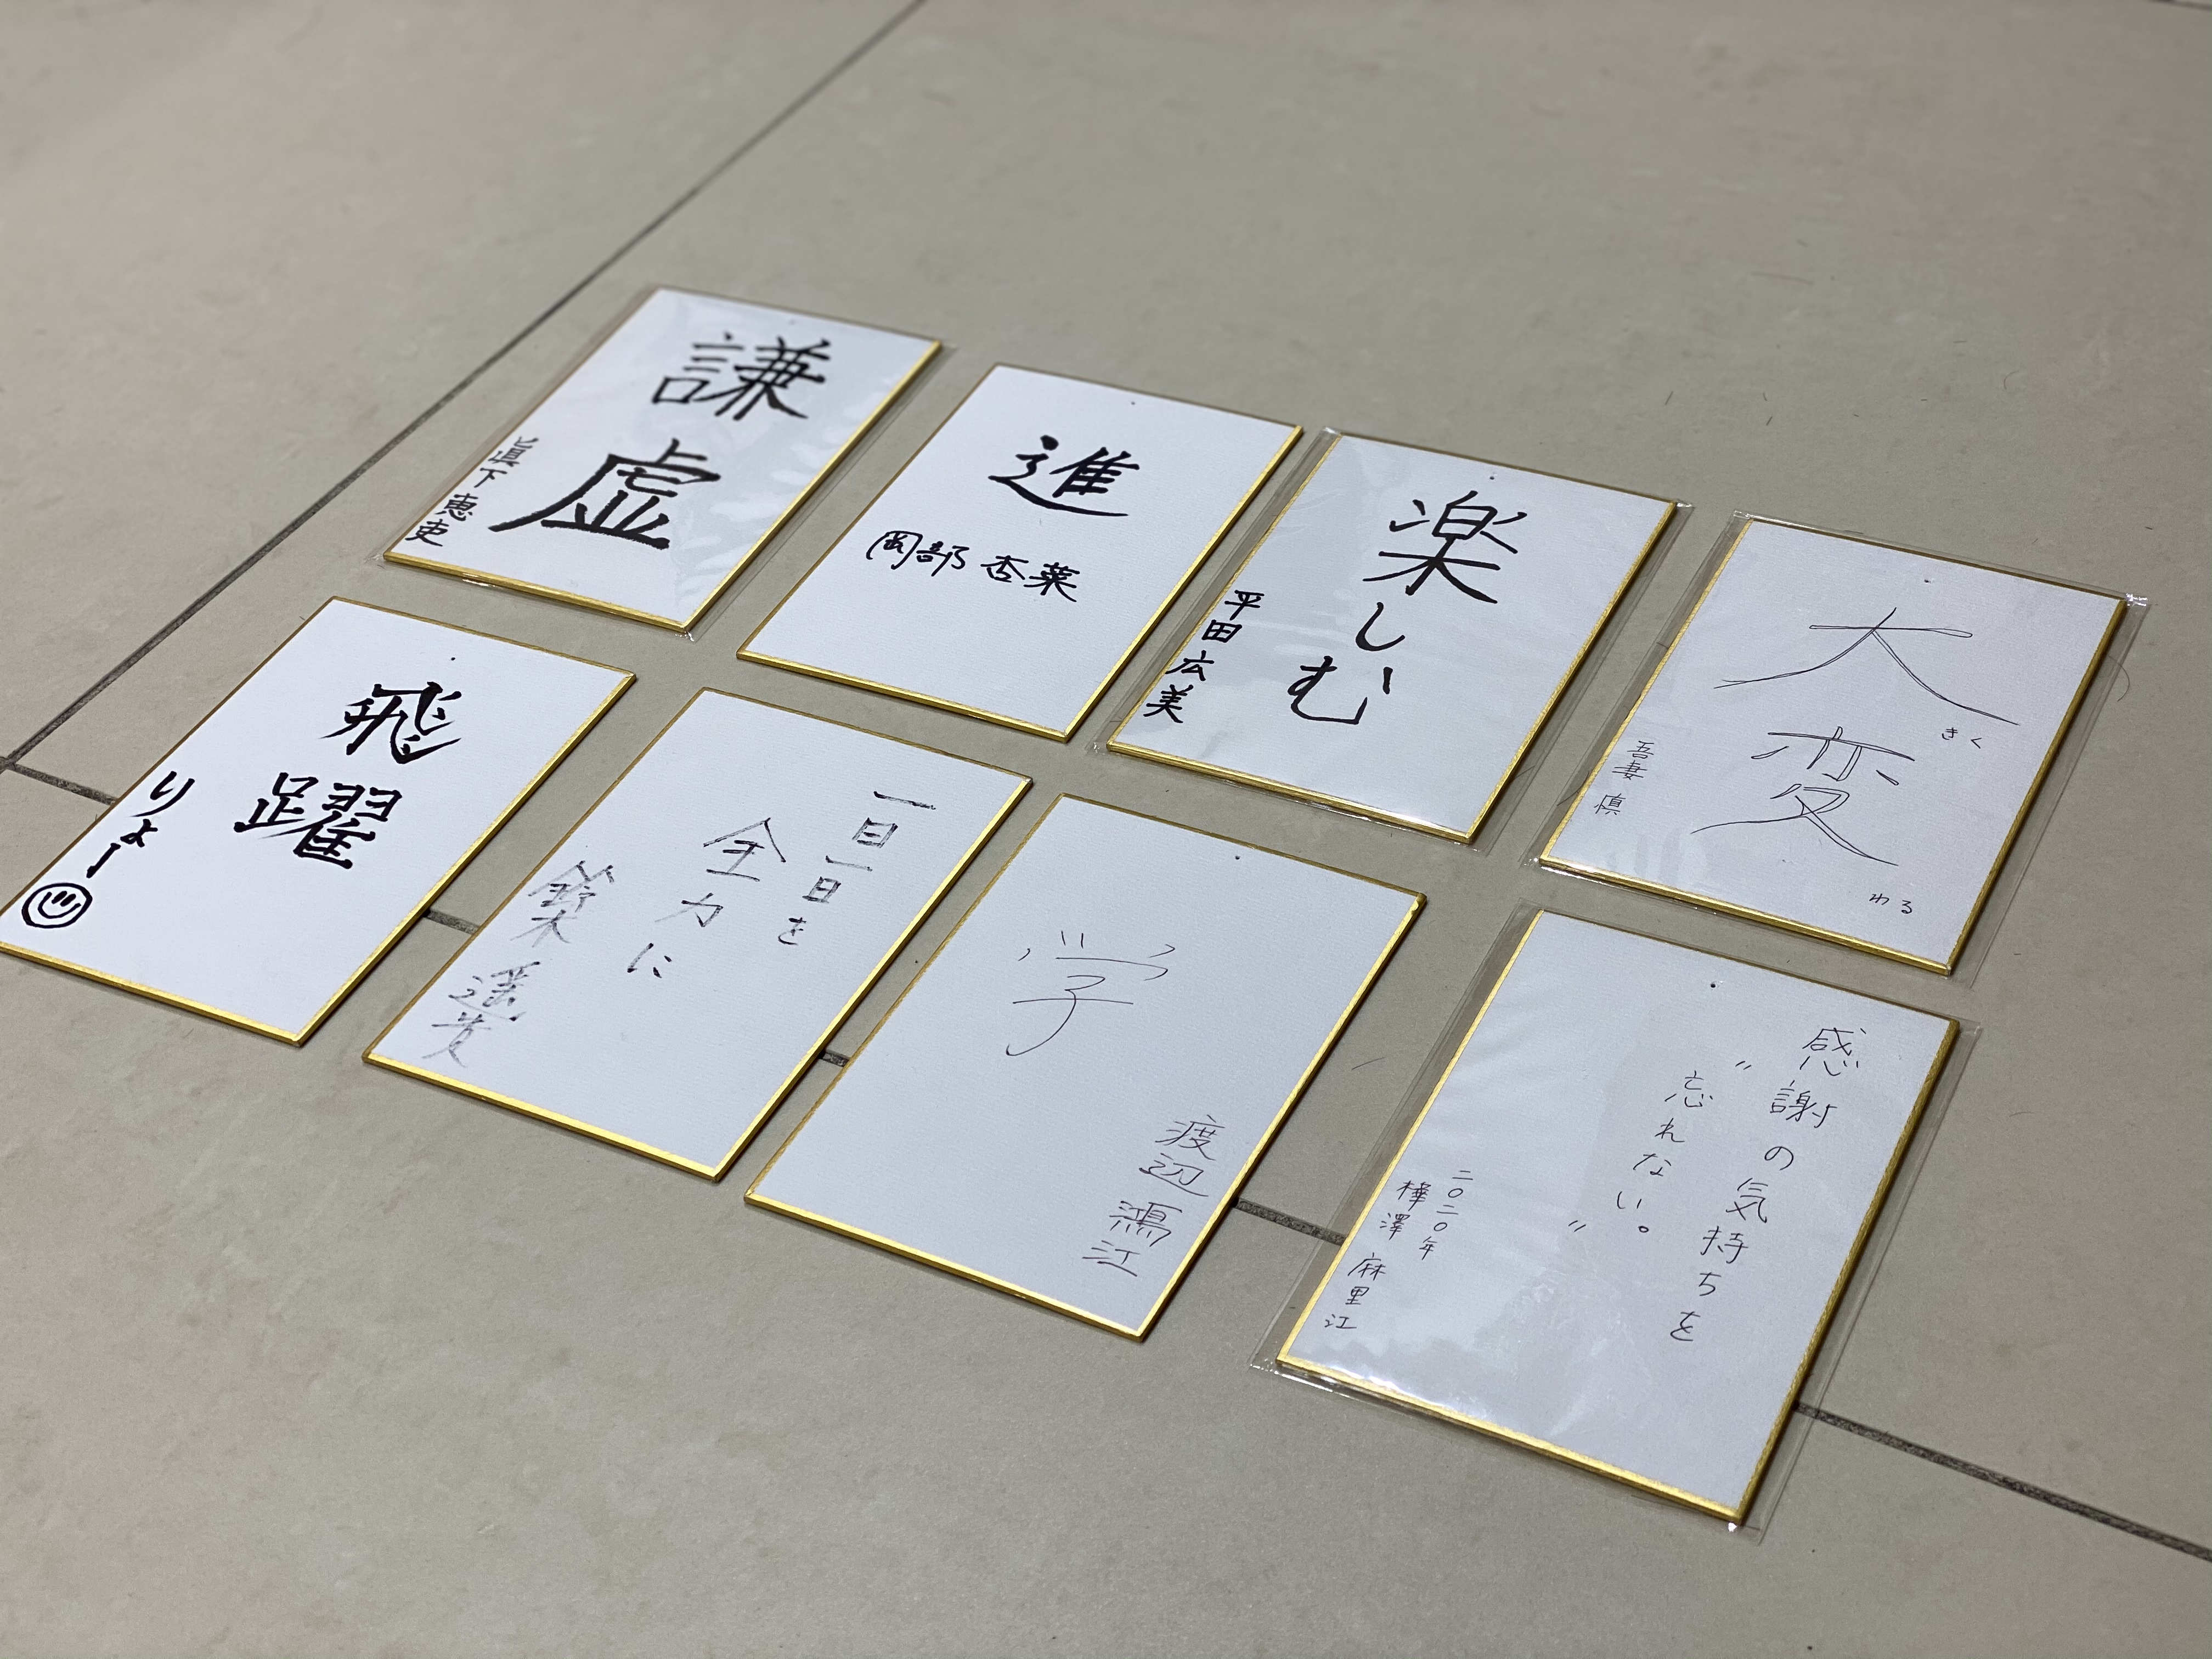 謙虚
眞下 恵吏
進
岡部 杏菜
楽しむ
平田 広美
大きく
変わる
吾妻 慎
飛躍
りょー
一日一日を
全力に
鈴木 遥貴
学
渡辺 鴻江
感謝の気持ちを
〃忘れない。〃
二〇二〇年
樺澤 麻里江